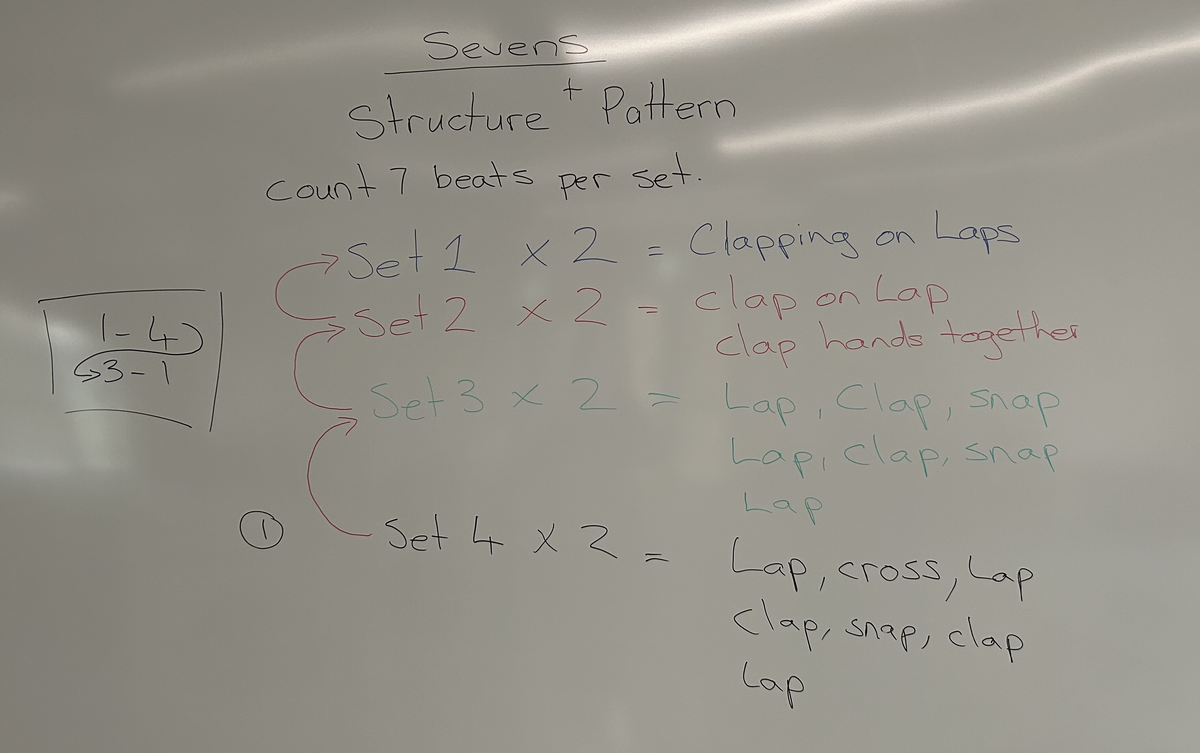 Sevens
Structure + Pattern
Count 7 beats per set.
Set 1 x 2 = Clapping on Laps
Set 2 x 2 = Clap on Lap
clap hands together
Set 3 x 2 = Lap, Clap, snap
Lap, Clap, snap
Lap
1 - 4
3 - 1
① Set 4 x 2 = Lap, cross, Lap
Clap, snap, clap
Lap